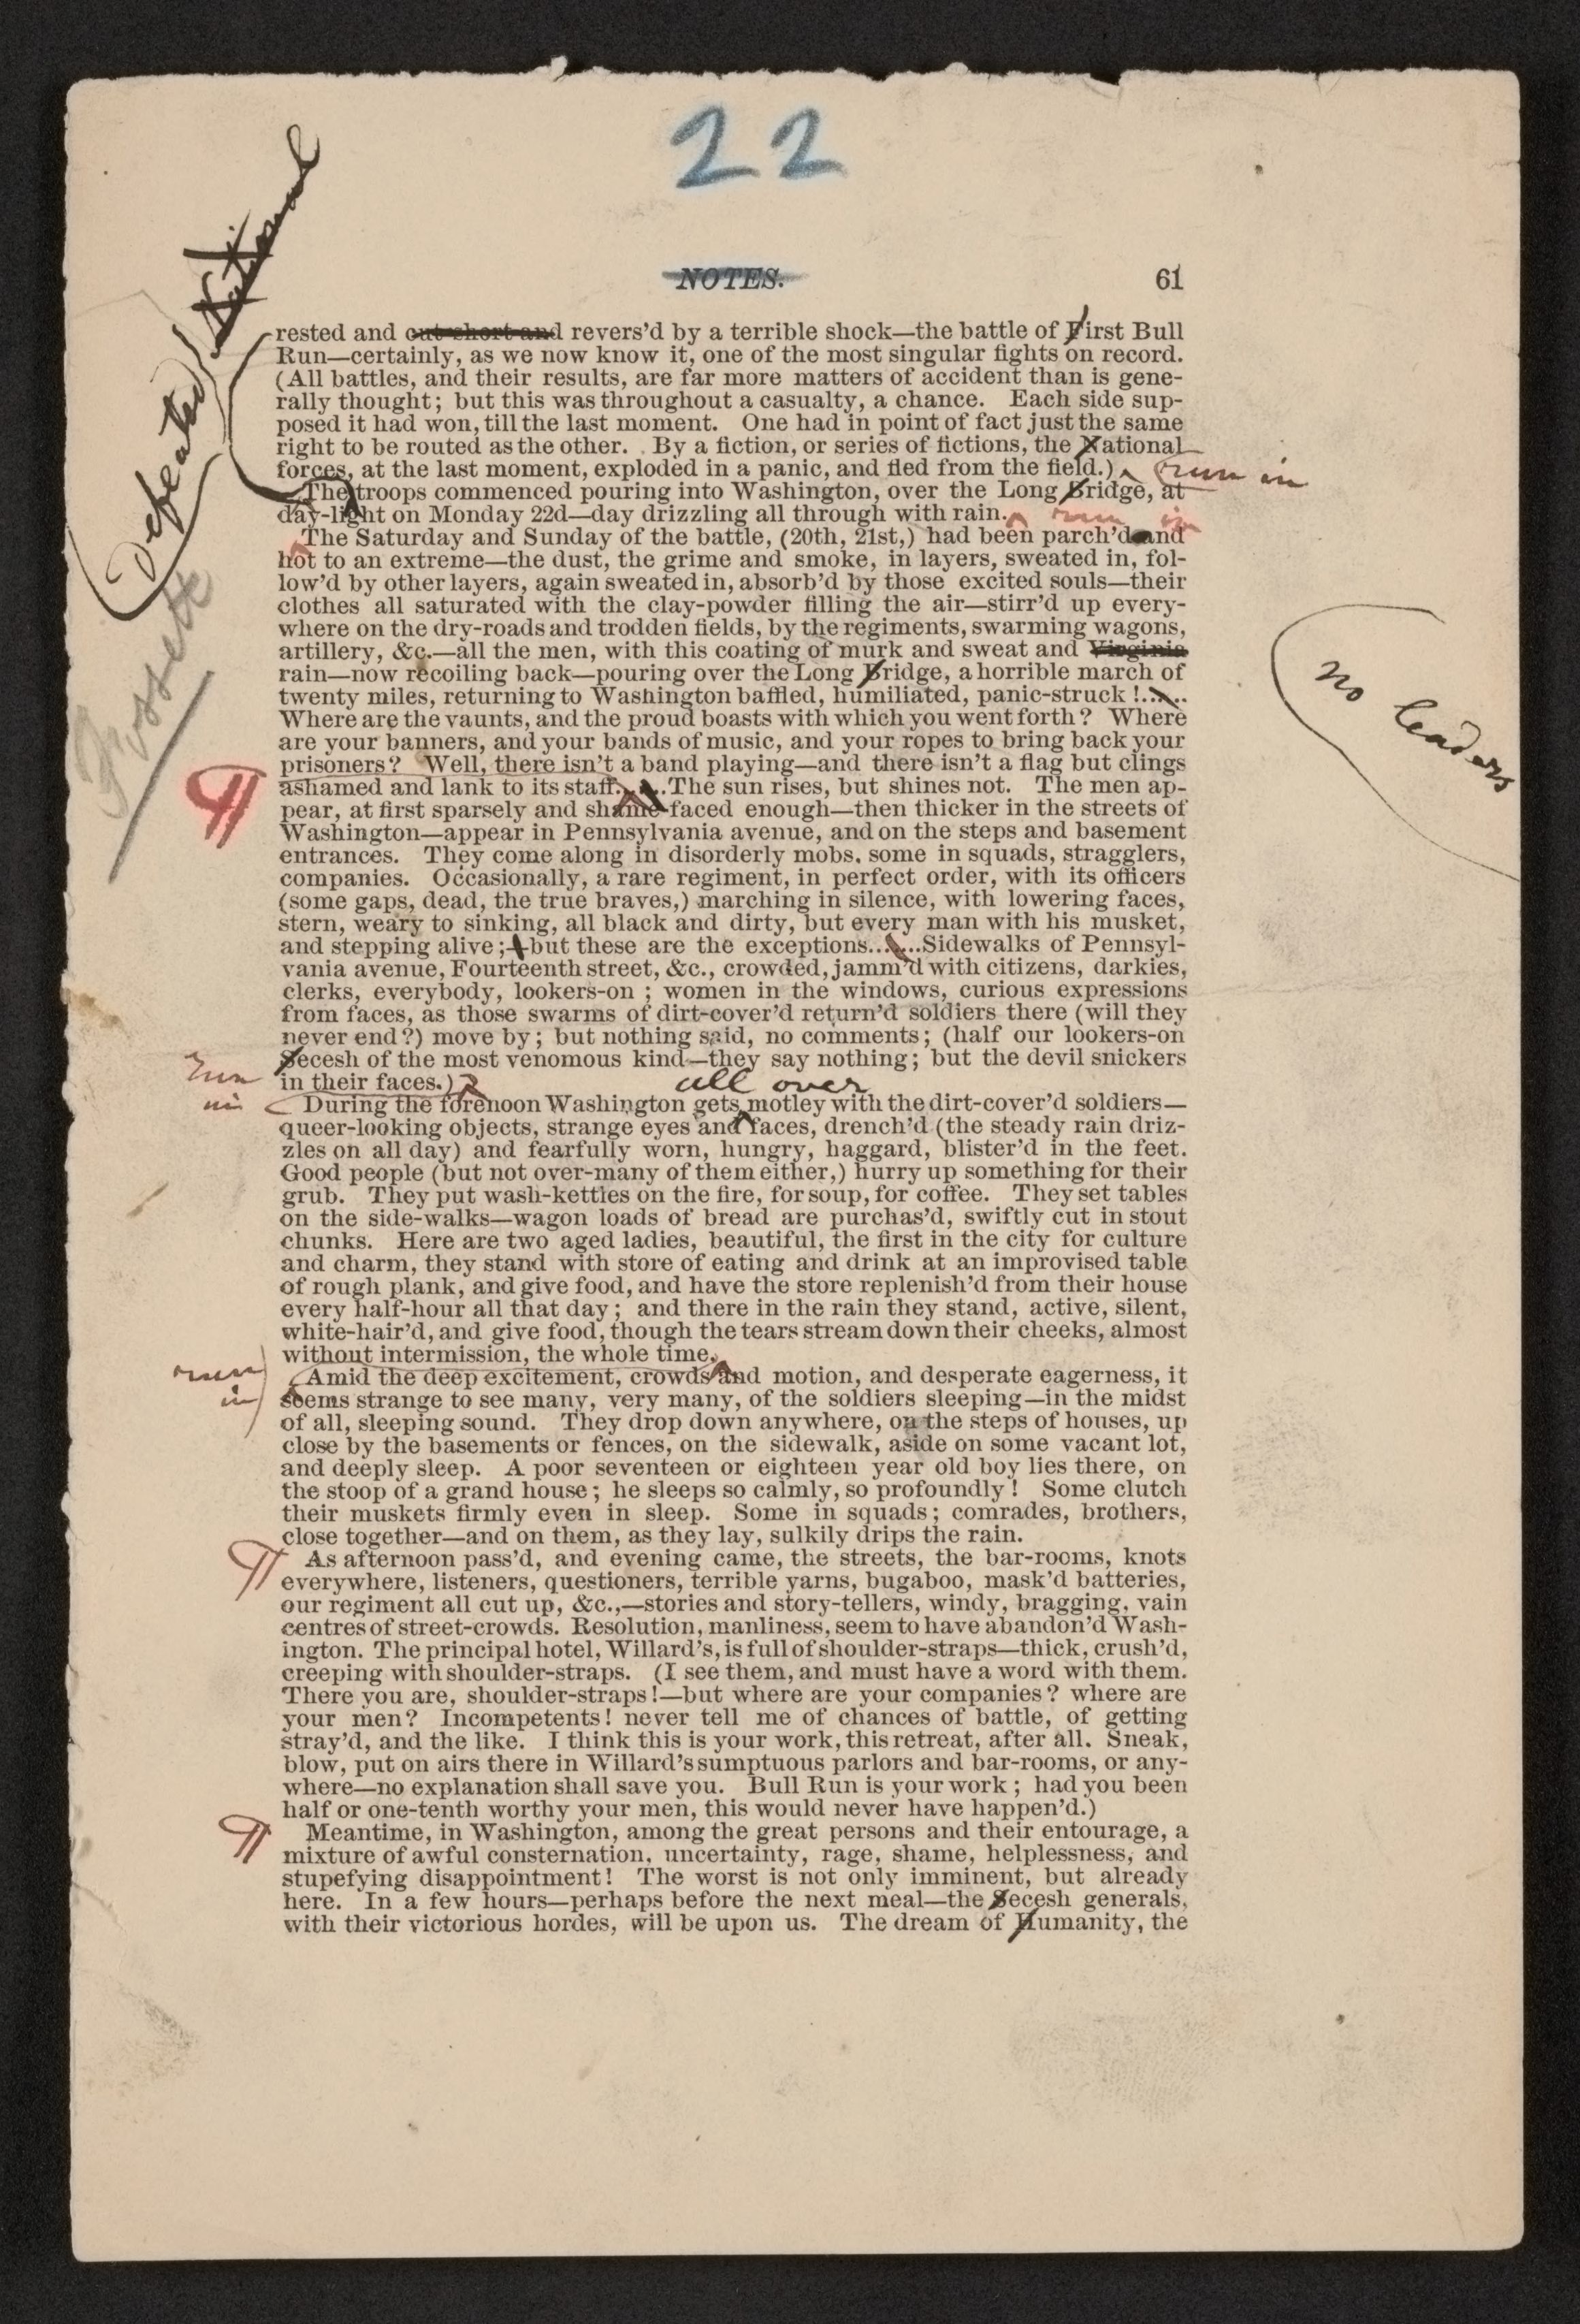 22
NOTES. 61
National
Defeated
rested and cut short and revers'd by a terrible shock—the battle of First Bull
Run—certainly, as we now know it, one of the most singular fights on record.
(All battles, and their results, are far more matters of accident than is gene-
rally thought; but this was throughout a casualty, a chance. Each side sup-
posed it had won, till the last moment. One had in point of fact just the same
right to be routed as the other. By a fiction, or series of fictions, the National
forces, at the last moment, exploded in a panic, and fled from the field.) run in
The troops commenced pouring into Washington, over the Long Bridge, at
day-light on Monday 22d—day drizzling all through with rain. run in
The Saturday and Sunday of the battle, (20th, 21st,) had been parch'd and
hot to an extreme—the dust, the grime and smoke, in layers, sweated in, fol-
low'd by other layers, again sweated in, absorb'd by those excited souls—their
clothes all saturated with the clay-powder filling the air—stirr'd up every-
where on the dry-roads and trodden fields, by the regiments, swarming wagons,
artillery, &c.—all the men, with this coating of murk and sweat and Virginia
rain—now recoiling back—pouring over the Long Bridge, a horrible march of
twenty miles, returning to Washington baffled, humiliated, panic-struck!.....
no leaders
Where are the vaunts, and the proud boasts with which you went forth? Where
are your banners, and your bands of music, and your ropes to bring back your
prisoners? Well, there isn't a band playing—and there isn't a flag but clings
¶ ashamed and lank to its staff......The sun rises, but shines not. The men ap-
pear, at first sparsely and shame-faced enough—then thicker in the streets of
Washington—appear in Pennsylvania avenue, and on the steps and basement
entrances. They come along in disorderly mobs. some in squads, stragglers,
companies. Occasionally, a rare regiment, in perfect order, with its officers
(some gaps, dead, the true braves,) marching in silence, with lowering faces,
stern, weary to sinking, all black and dirty, but every man with his musket,
and stepping alive;—but these are the exceptions......Sidewalks of Pennsyl-
vania avenue, Fourteenth street, &c., crowded, jamm'd with citizens, darkies,
clerks, everybody, lookers-on; women in the windows, curious expressions
from faces, as those swarms of dirt-cover'd return'd soldiers there (will they
never end?) move by; but nothing said, no comments; (half our lookers-on
Secesh of the most venomous kind—they say nothing; but the devil snickers
run in
in their faces.)
all over
During the forenoon Washington gets motley with the dirt-cover'd soldiers—
queer-looking objects, strange eyes and faces, drench'd (the steady rain driz-
zles on all day) and fearfully worn, hungry, haggard, blister'd in the feet.
Good people (but not over-many of them either,) hurry up something for their
grub. They put wash-kettles on the fire, for soup, for coffee. They set tables
on the side-walks—wagon loads of bread are purchas'd, swiftly cut in stout
chunks. Here are two aged ladies, beautiful, the first in the city for culture
and charm, they stand with store of eating and drink at an improvised table
of rough plank, and give food, and have the store replenish'd from their house
every half-hour all that day; and there in the rain they stand, active, silent,
white-hair'd, and give food, though the tears stream down their cheeks, almost
without intermission, the whole time.
run in
Amid the deep excitement, crowds and motion, and desperate eagerness, it
seems strange to see many, very many, of the soldiers sleeping—in the midst
of all, sleeping sound. They drop down anywhere, on the steps of houses, up
close by the basements or fences, on the sidewalk, aside on some vacant lot,
and deeply sleep. A poor seventeen or eighteen year old boy lies there, on
the stoop of a grand house; he sleeps so calmly, so profoundly! Some clutch
their muskets firmly even in sleep. Some in squads; comrades, brothers,
close together—and on them, as they lay, sulkily drips the rain.
¶ As afternoon pass'd, and evening came, the streets, the bar-rooms, knots
everywhere, listeners, questioners, terrible yarns, bugaboo, mask'd batteries,
our regiment all cut up, &c.,—stories and story-tellers, windy, bragging, vain
centres of street-crowds. Resolution, manliness, seem to have abandon'd Wash-
ington. The principal hotel, Willard's, is full of shoulder-straps—thick, crush'd,
creeping with shoulder-straps. (I see them, and must have a word with them.
There you are, shoulder-straps!—but where are your companies? where are
your men? Incompetents! never tell me of chances of battle, of getting
stray'd, and the like. I think this is your work, this retreat, after all. Sneak,
blow, put on airs there in Willard's sumptuous parlors and bar-rooms, or any-
where—no explanation shall save you. Bull Run is your work; had you been
half or one-tenth worthy your men, this would never have happen'd.)
¶ Meantime, in Washington, among the great persons and their entourage, a
mixture of awful consternation, uncertainty, rage, shame, helplessness, and
stupefying disappointment! The worst is not only imminent, but already
here. In a few hours—perhaps before the next meal—the Secesh generals,
with their victorious hordes, will be upon us. The dream of Humanity, the